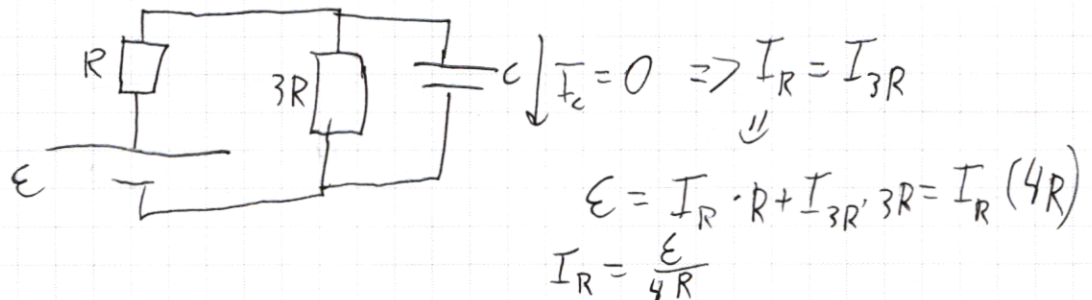 R
3R
C
ε
I_c = 0 => I_R = I_3R
⇓
ε = I_R · R + I_3R · 3R = I_R (4R)
I_R = ε/4R